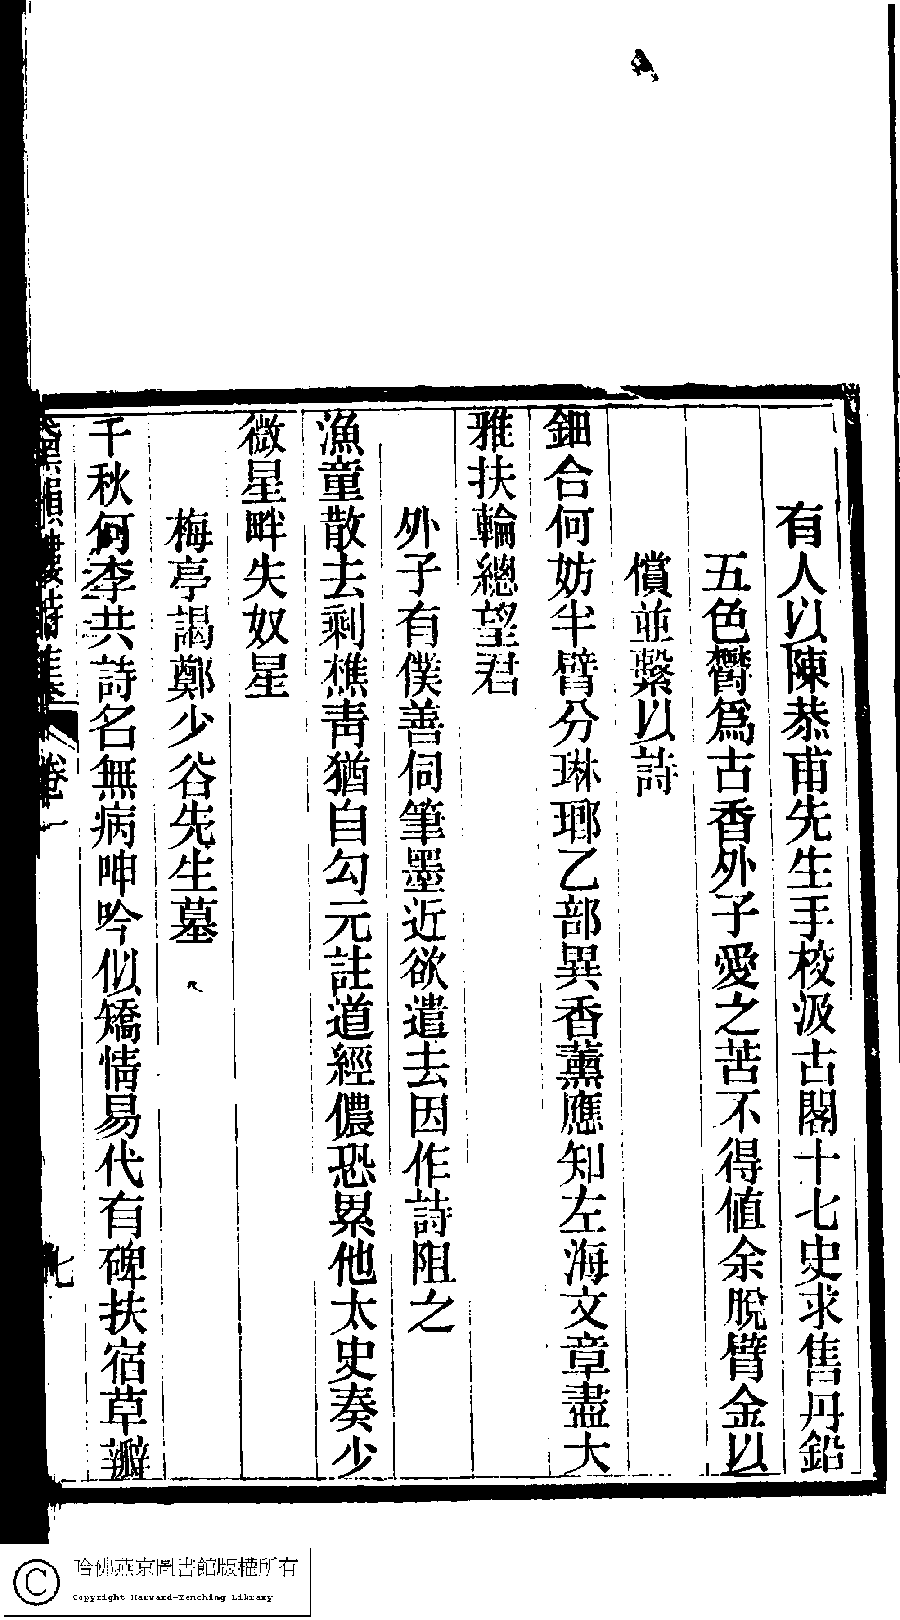 有人以陳恭甫先生手校汲古閣十七史求售丹鉛
五色欝爲古香外子愛之苦不得値余脫臂金以
償並繫以詩
鈿合何妨半臂分琳瑯乙部異香薰應知左海文章盡大
雅扶輪總望君
外子有僕善伺筆墨近欲遣去因作詩阻之
漁童散去剩樵青猶自勾元註道經儂恐累他太史奏少
微星畔失奴星
梅亭謁鄭少谷先生墓
千秋何李共詩名無病呻吟似矯情易代有碑扶宿草瓣
韻樓詩集 卷一 七
哈佛燕京圖書館版權所有
Copyright Harvard-Yenching Library